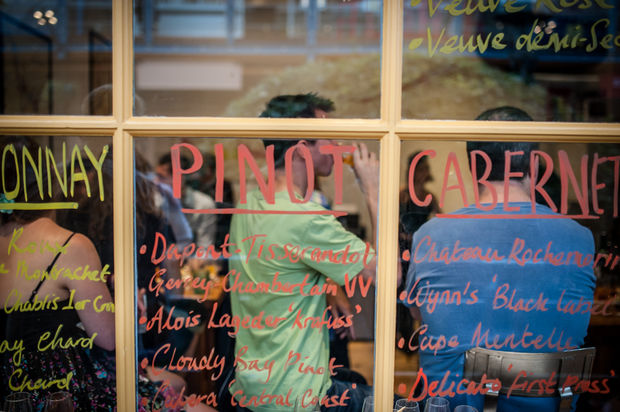 Veuve Rosé
• Veuve demi-Sec
ONNAY
Montrachet
Chablis 1er Cru
Chard
Chard
PINOT
• Dupont-Tisserandot
Gevrey-Chambertain VV
• Alois Lageder 'Krafuss'
• Cloudy Bay Pinot
'Central Coast'
CABERNET
• Chateau Rochemorin
• Wynn's 'Black Label
• Cape Mentelle
• Delicato 'First Press'